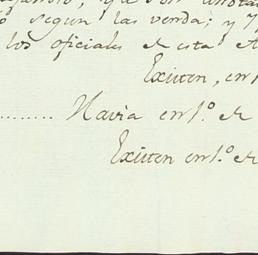 segun las venda; y
los oficiales de esta
Existen, en
Havia en 1.º de
Existen en 1.º de